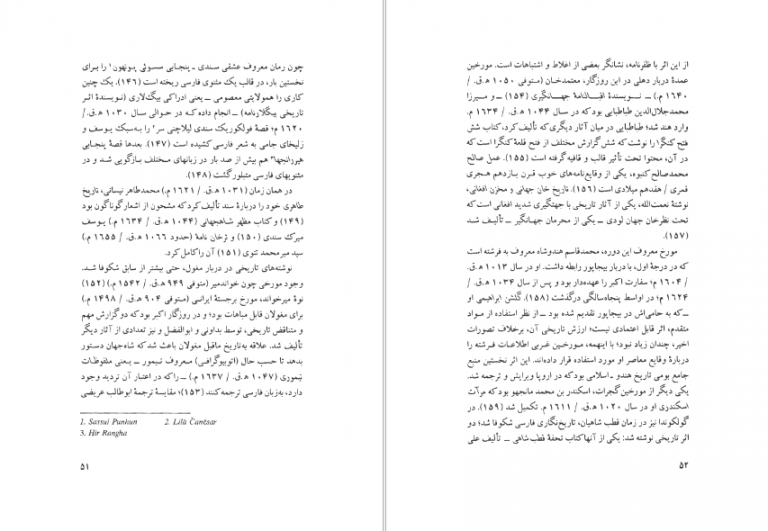 چون رمان معروف عشقی سندی ـ پنجابی سسوئی پونهون۱ را برای
نخستین بار، در قالب یک مثنوی فارسی ریخته است (۱۴۶). یک چنین
کاری را همولایتی معصومی ــ یعنی ادراکی بیگ‌لاری (نویسندهٔ اثر
تاریخی بیگلارنامه) ــ انجام داده که در حوالی سال ۱۰۳۰ ه‍.ق./
۱۶۲۰ م؛ قصهٔ فولکلوریک سندی لیلاچنی سر۲ را به‌سبک یوسف و
زلیخای جامی به شعر فارسی کشیده است (۱۴۷). بعدها قصهٔ پنجابی
هیررانجها۳ هم بیش از صد بار در زبانهای مختلف بازگویی شد و در
مثنویهای فارسی متبلور گشت (۱۴۸).
در همان زمان (۱۰۳۱ ه‍.ق. / ۱۶۲۱ م.)، محمدطاهر نسیانی، تاریخ
طاهری خود را دربارهٔ سند تألیف کرد که مشحون از اشعار گوناگون بود
(۱۴۹) و کتاب مظهر شاهجهانی (۱۰۴۴ ه‍.ق. / ۱۶۳۴ م.) یوسف
میرک سندی (۱۵۰) و ترخان نامهٔ (حدود ۱۰۶۶ ه‍.ق. / ۱۶۵۵ م.)
سید میرمحمد تتوی (۱۵۱) آن را کامل کرد.
نوشته‌های تاریخی در دربار مغول، حتی بیشتر از سابق شکوفا شد.
وجود مورخی چون خواندمیر (متوفی ۹۴۹ ه‍.ق. / ۱۵۴۲ م.) (۱۵۲)
نوهٔ میرخواند، مورخ برجستهٔ ایرانی (متوفی ۹۰۴ ه‍.ق. / ۱۴۹۸ م.)
برای مغولان قابل مباهات بود؛ و در روزگار اکبر بود که دو گزارش مهم
و متناقض تاریخی، توسط بداونی و ابوالفضل و نیز تعدادی از آثار دیگر
تألیف شد. علاقه به‌تاریخ ماقبل مغولان باعث شد که شاه‌جهان دستور
بدهد تا حسب حال (اتوبیوگرافی) معروف تیمور ــ یعنی ملفوظات
تیموری (۱۰۴۷ ه‍.ق. / ۱۶۳۷ م.) ــ را که در اعتبار آن تردید وجود
دارد، به‌زبان فارسی ترجمه کنند (۱۵۳)؛ مقایسهٔ ترجمهٔ ابوطالب عریضی
1. Sassui Punhun 2. Lilā Čanēsar
3. Hir Rangha
۵۱
از این اثر با ظفرنامه، نشانگر بعضی از اغلاط و اشتباهات است. مورخین
عمدهٔ دربار دهلی در این روزگار، معتمدخان (متوفی ۱۰۵۰ ه‍.ق. /
۱۶۴۰ م.) ــ نویسندهٔ اقبالنامهٔ جهانگیری (۱۵۴) ــ و میرزا
محمدجلال‌الدین طباطبایی بود که در سال ۱۰۴۴ ه‍.ق. / ۱۶۳۴ م.
وارد هند شد؛ طباطبایی در میان آثار دیگری که تألیف کرد، کتاب شش
فتح کنگرا را نوشت که شش گزارش مختلف از فتح قلعهٔ کنگرا است که
در آن، محتوا تحت تأثیر قالب و قافیه گرفته است (۱۵۵). عمل صالح
محمدصالح کنبوه، یکی از وقایع‌نامه‌های خوب قرن یازدهم هجری
قمری / هفدهم میلادی است (۱۵۶). تاریخ خان جهانی و مخزن افغانی،
نوشتهٔ نعمت‌الله، یکی از آثار تاریخی با جهتگیری شدید افغانی است که
تحت نظر خان جهان لودی ــ یکی از محرمان جهانگیر ــ تألیف شد
(۱۵۷).
مورخ معروف این دوره، محمدقاسم هندوشاه معروف به فرشته است
که در درجهٔ اول، با دربار بیجاپور رابطه داشت. او در سال ۱۰۱۳ ه‍.ق.
/ ۱۶۰۴ م؛ سفارت اکبر را عهده‌دار بود و پس از سال ۱۰۳۴ ه‍.ق. /
۱۶۲۴ م؛ در اواسط پنجاه‌سالگی درگذشت (۱۵۸). گلشن ابراهیمی او
ــ که به حامی‌اش در بیجاپور تقدیم شده بود ــ از نظر استفاده از مواد
متقدم، اثر قابل اعتمادی نیست؛ ارزش تاریخی آن، برخلاف تصورات
اخیر، چندان زیاد نبود؛ با اینهمه، مورخین غربی اطلاعات فرشته را
دربارهٔ وقایع معاصر او مورد استفاده قرار داده‌اند. این اثر نخستین منبع
جامع بومی تاریخ هندو ـ اسلامی بود که در اروپا ویرایش و ترجمه شد.
یکی دیگر از مورخین گجرات، اسکندر بن محمد مانجهو بود که مرآت
اسکندری او در سال ۱۰۲۰ ه‍.ق. / ۱۶۱۱ م. تکمیل شد (۱۵۹). در
گولکوندا نیز در زمان قطب شاهیان، تاریخ‌نگاری فارسی شکوفا شد؛ دو
اثر تاریخی نوشته شد: یکی از آنها کتاب تحفهٔ قطب‌شاهی ــ تألیف علی
۵۲